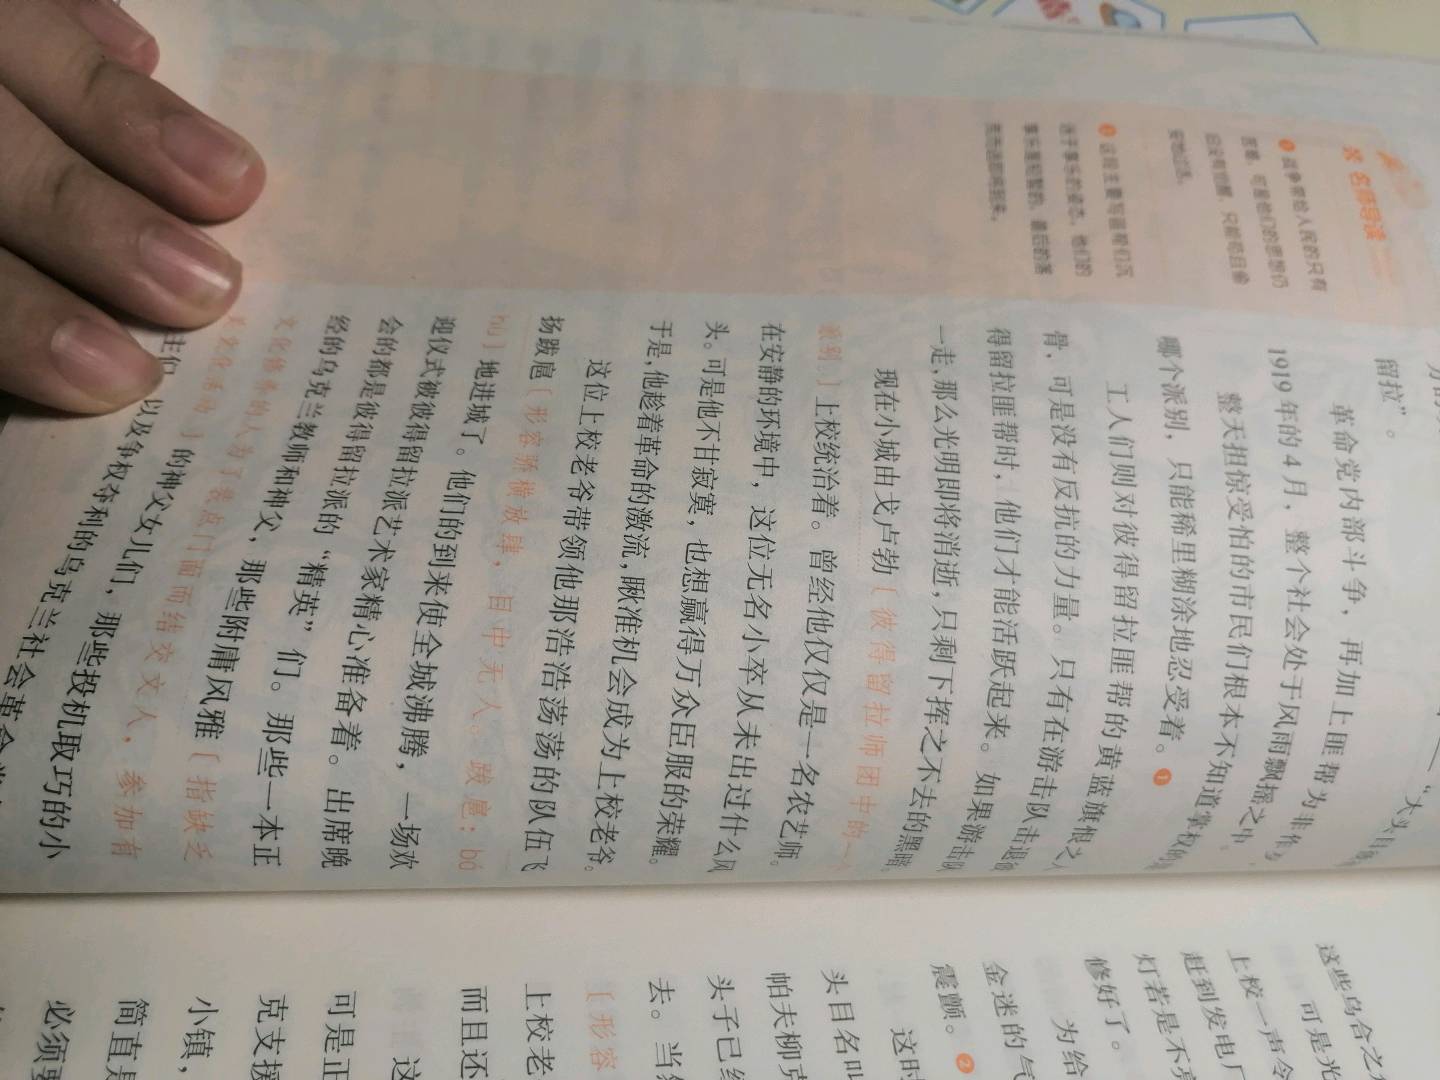 名师导读
❶ 战争带给人民的只有
苦难，可是他们的思想仍
旧没有觉醒，只能苟且偷
安地过活。
❷ 这段主要写匪帮们沉
迷于享乐的姿态，他们的
享乐是短暂的，最后的落
荒而逃即将到来。
留拉”。
革命党内部斗争，再加上匪帮为非作
1919年的4月，整个社会处于风雨飘摇之中。
整天担惊受怕的市民们根本不知道掌权的
哪个派别，只能稀里糊涂地忍受着。❶
工人们则对彼得留拉匪帮的黄蓝旗恨之入
骨，可是没有反抗的力量。只有在游击队击退彼
得留拉匪帮时，他们才能活跃起来。如果游击队
一走，那么光明即将消逝，只剩下挥之不去的黑暗。
现在小城由戈卢勃〔彼得留拉师团中的一
派别。〕上校统治着。曾经他仅仅是一名农艺师。
在安静的环境中，这位无名小卒从未出过什么风
头。可是他不甘寂寞，也想赢得万众臣服的荣耀。
于是，他趁着革命的激流，瞅准机会成为上校老爷。
这位上校老爷带领他那浩浩荡荡的队伍飞
扬跋扈〔形容骄横放肆，目中无人。跋扈：bá
hù〕地进城了。他们的到来使全城沸腾，一场欢
迎仪式被彼得留拉派艺术家精心准备着。出席晚
会的都是彼得留拉派的“精英”们。那些一本正
经的乌克兰教师和神父，那些附庸风雅〔指缺乏
文化修养的人为了装点门面而结交文人，参加有
关文化活动〕的神父女儿们，那些投机取巧的小
主，以及争权夺利的乌克兰社会革命党
这些乌合之
可是光
上校一声令
赶到发电厂
灯若是不亮
修好了。
为给
金迷的气
震颤。❷
这时
头目名叫
帕夫柳克
头子已经
去。当
〔形容
上校老
而且还
这
可是正
克支援
小镇，
简直是
必须要